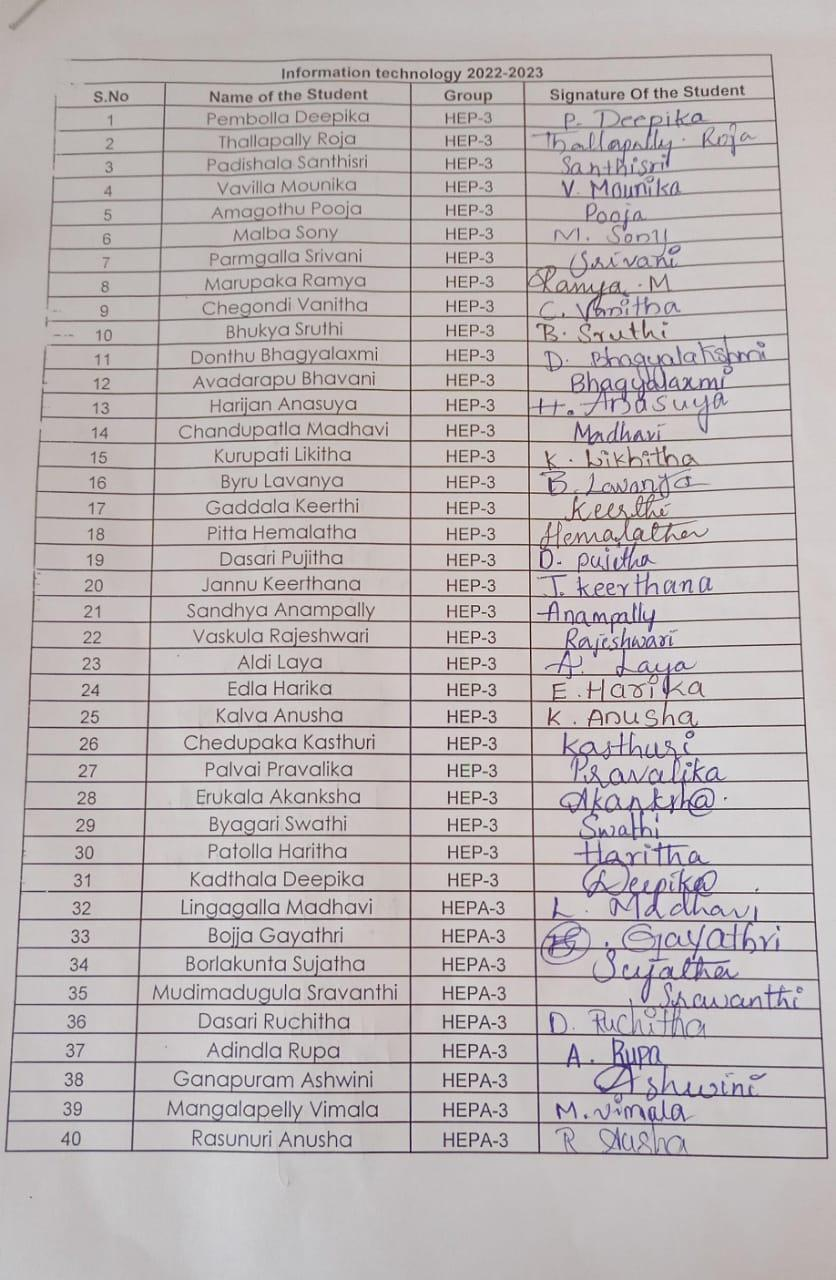 Information technology 2022-2023
S.No Name of the Student Group Signature Of the Student
1 Pembolla Deepika HEP-3 P. Deepika
2 Thallapally Roja HEP-3 Thallapally. Roja
3 Padishala Santhisri HEP-3 Santhisri
4 Vavilla Mounika HEP-3 V. Mounika
5 Amagothu Pooja HEP-3 Pooja
6 Malba Sony HEP-3 M. Sony
7 Parmgalla Srivani HEP-3 Srivani
8 Marupaka Ramya HEP-3 Ramya.M
9 Chegondi Vanitha HEP-3 C. Vanitha
10 Bhukya Sruthi HEP-3 B. Sruthi
11 Donthu Bhagyalaxmi HEP-3 D. Bhagyalakshmi
12 Avadarapu Bhavani HEP-3 Bhagyalaxmi
13 Harijan Anasuya HEP-3 H. Anasuya
14 Chandupatla Madhavi HEP-3 Madhavi
15 Kurupati Likitha HEP-3 K. Likhitha
16 Byru Lavanya HEP-3 B. Lavanya
17 Gaddala Keerthi HEP-3 Keerthi
18 Pitta Hemalatha HEP-3 Hemalatha
19 Dasari Pujitha HEP-3 D. pujitha
20 Jannu Keerthana HEP-3 J. keerthana
21 Sandhya Anampally HEP-3 Anampally
22 Vaskula Rajeshwari HEP-3 Rajeshwari
23 Aldi Laya HEP-3 A. Laya
24 Edla Harika HEP-3 E. Harika
25 Kalva Anusha HEP-3 K. Anusha
26 Chedupaka Kasthuri HEP-3 Kasthuri
27 Palvai Pravalika HEP-3 Pravalika
28 Erukala Akanksha HEP-3 Akanksha.
29 Byagari Swathi HEP-3 Swathi
30 Patolla Haritha HEP-3 Haritha
31 Kadthala Deepika HEP-3 Deepika
32 Lingagalla Madhavi HEPA-3 L. Madhavi
33 Bojja Gayathri HEPA-3 Gayathri
34 Borlakunta Sujatha HEPA-3 Sujatha
35 Mudimadugula Sravanthi HEPA-3 Srawanthi
36 Dasari Ruchitha HEPA-3 D. Ruchitha
37 Adindla Rupa HEPA-3 A. Rupa
38 Ganapuram Ashwini HEPA-3 Ashwini
39 Mangalapelly Vimala HEPA-3 M. Vimala
40 Rasunuri Anusha HEPA-3 R